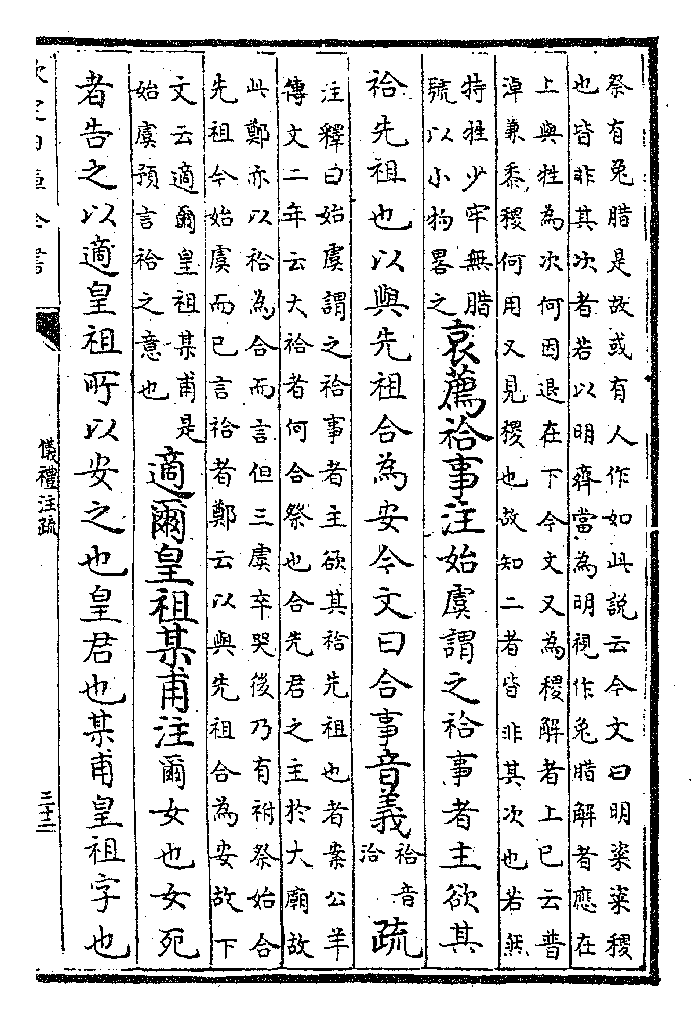 祭有兔腊是故或有人作如此說云今文曰明粢粢稷
也皆非其次者若以明齊當為明視作兔腊解者應在
上與牲為次何因退在下今文又為稷解者上已云普
淖兼黍稷何用又見稷也故知二者皆非其次也若然
特牲少牢無腊
號以小物畧之
哀薦祫事注始虞謂之祫事者主欲其
祫先祖也以與先祖合為安今文曰合事音義
祫音
洽
疏
注釋曰始虞謂之祫事者主欲其祫先祖也者案公羊
傳文二年云大祫者何合祭也合先君之主於大廟故
此鄭亦以祫為合而言但三虞卒哭後乃有祔祭始合
先祖今始虞而已言祫者鄭云以與先祖合為安故下
文云適爾皇祖某甫是
始虞預言祫之意也
適爾皇祖某甫注爾女也女死
者告之以適皇祖所以安之也皇君也某甫皇祖字也
儀禮注疏
三十二